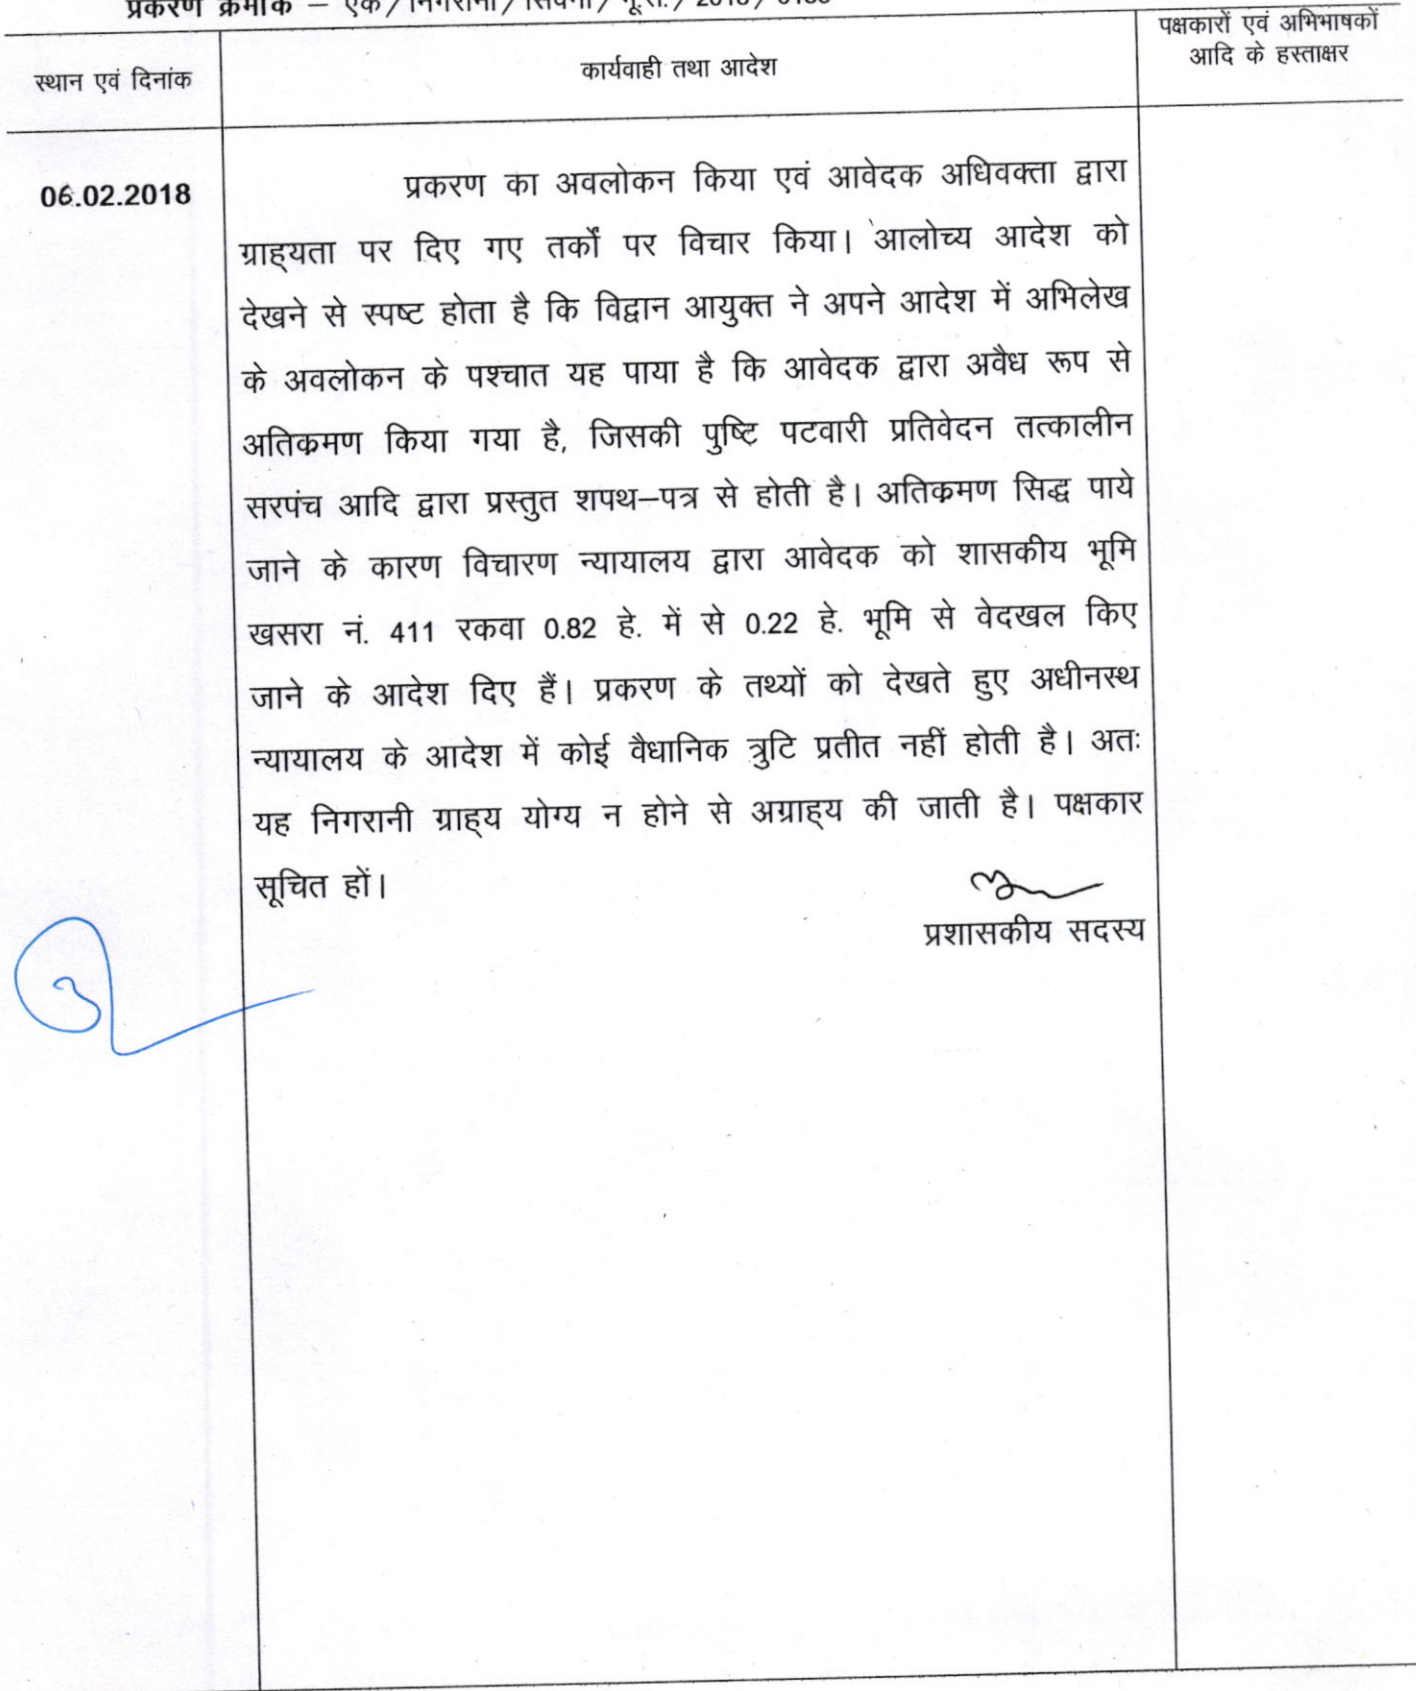 प्रकरण क्रमांक – एक / निगरानी / सिवनी / भू.रा. / 2018 /
स्थान एवं दिनांक
कार्यवाही तथा आदेश
पक्षकारों एवं अभिभाषकों
आदि के हस्ताक्षर
06.02.2018
प्रकरण का अवलोकन किया एवं आवेदक अधिवक्ता द्वारा
ग्राह्यता पर दिए गए तर्कों पर विचार किया। आलोच्य आदेश को
देखने से स्पष्ट होता है कि विद्वान आयुक्त ने अपने आदेश में अभिलेख
के अवलोकन के पश्चात यह पाया है कि आवेदक द्वारा अवैध रूप से
अतिक्रमण किया गया है, जिसकी पुष्टि पटवारी प्रतिवेदन तत्कालीन
सरपंच आदि द्वारा प्रस्तुत शपथ–पत्र से होती है। अतिक्रमण सिद्ध पाये
जाने के कारण विचारण न्यायालय द्वारा आवेदक को शासकीय भूमि
खसरा नं. 411 रकवा 0.82 हे. में से 0.22 हे. भूमि से वेदखल किए
जाने के आदेश दिए हैं। प्रकरण के तथ्यों को देखते हुए अधीनस्थ
न्यायालय के आदेश में कोई वैधानिक त्रुटि प्रतीत नहीं होती है। अतः
यह निगरानी ग्राह्य योग्य न होने से अग्राह्य की जाती है। पक्षकार
सूचित हों।
प्रशासकीय सदस्य